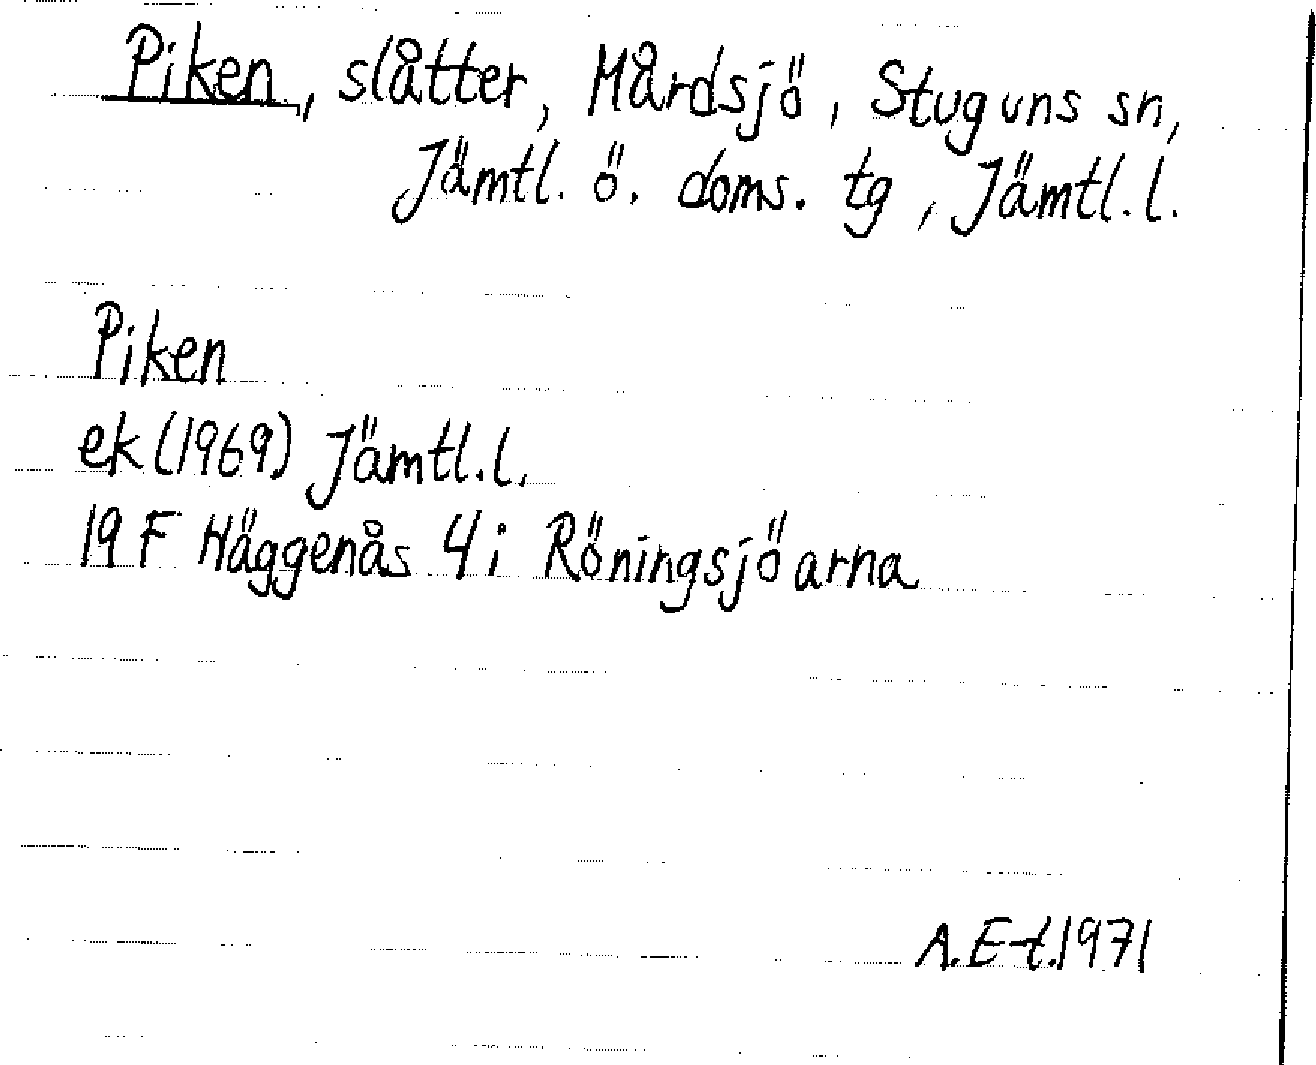 Piken, slåtter, Mårdsjö, Stuguns sn,
Jämtl. ö. doms. tg, Jämtl. l.
Piken
ek (1969) Jämtl. l.
19 F Häggenås 4 i Röningsjöarna
A. E-t. 1971